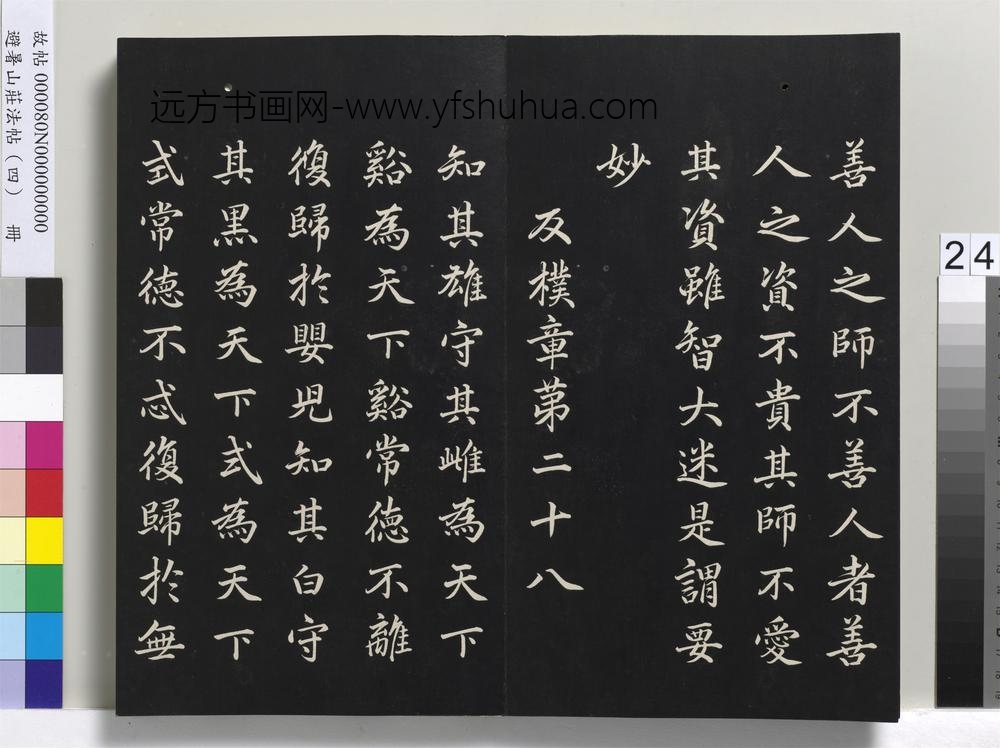 善人之師不善人者善
人之資不貴其師不愛
其資雖智大迷是謂要
妙
反樸章第二十八
知其雄守其雌為天下
谿為天下谿常德不離
復歸於嬰兒知其白守
其黑為天下式為天下
式常德不忒復歸於無
远方书画网-www.yfshuhua.com
故帖 000080N000000000
避暑山莊法帖（四） 冊
24